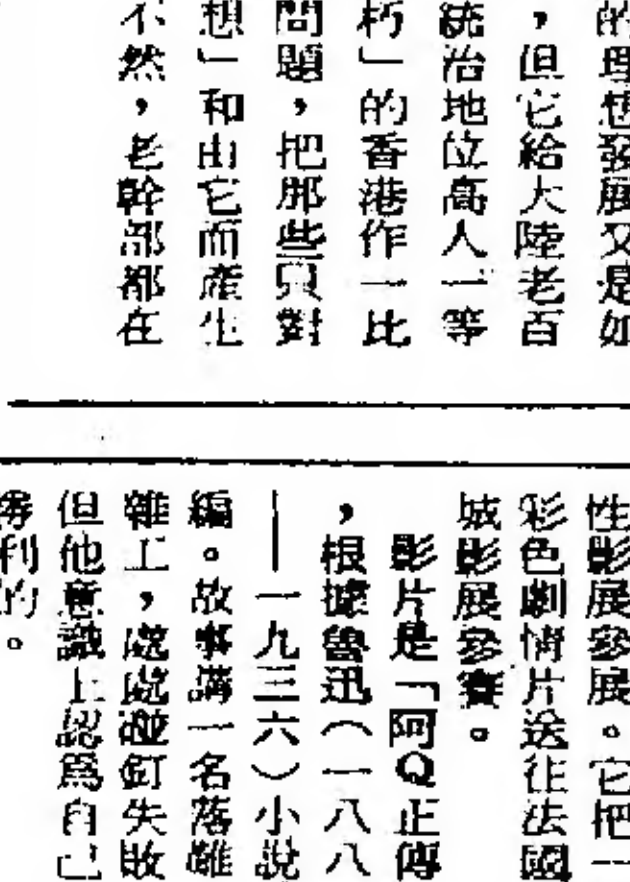 的理想發展又是如
，但它給大陸老百
統治地位高人一等
朽」的香港作一比
問題，把那些只對
想」和由它而產生
不然，老幹部都在
性影展參展。它把一
彩色劇情片送往法國
城影展參賽。
影片是「阿Q正傳
，根據魯迅（一八八
——一九三六）小說
編。故事講一名落難
雜工，處處碰釘失敗
但他意識上認爲自己
勝利的。